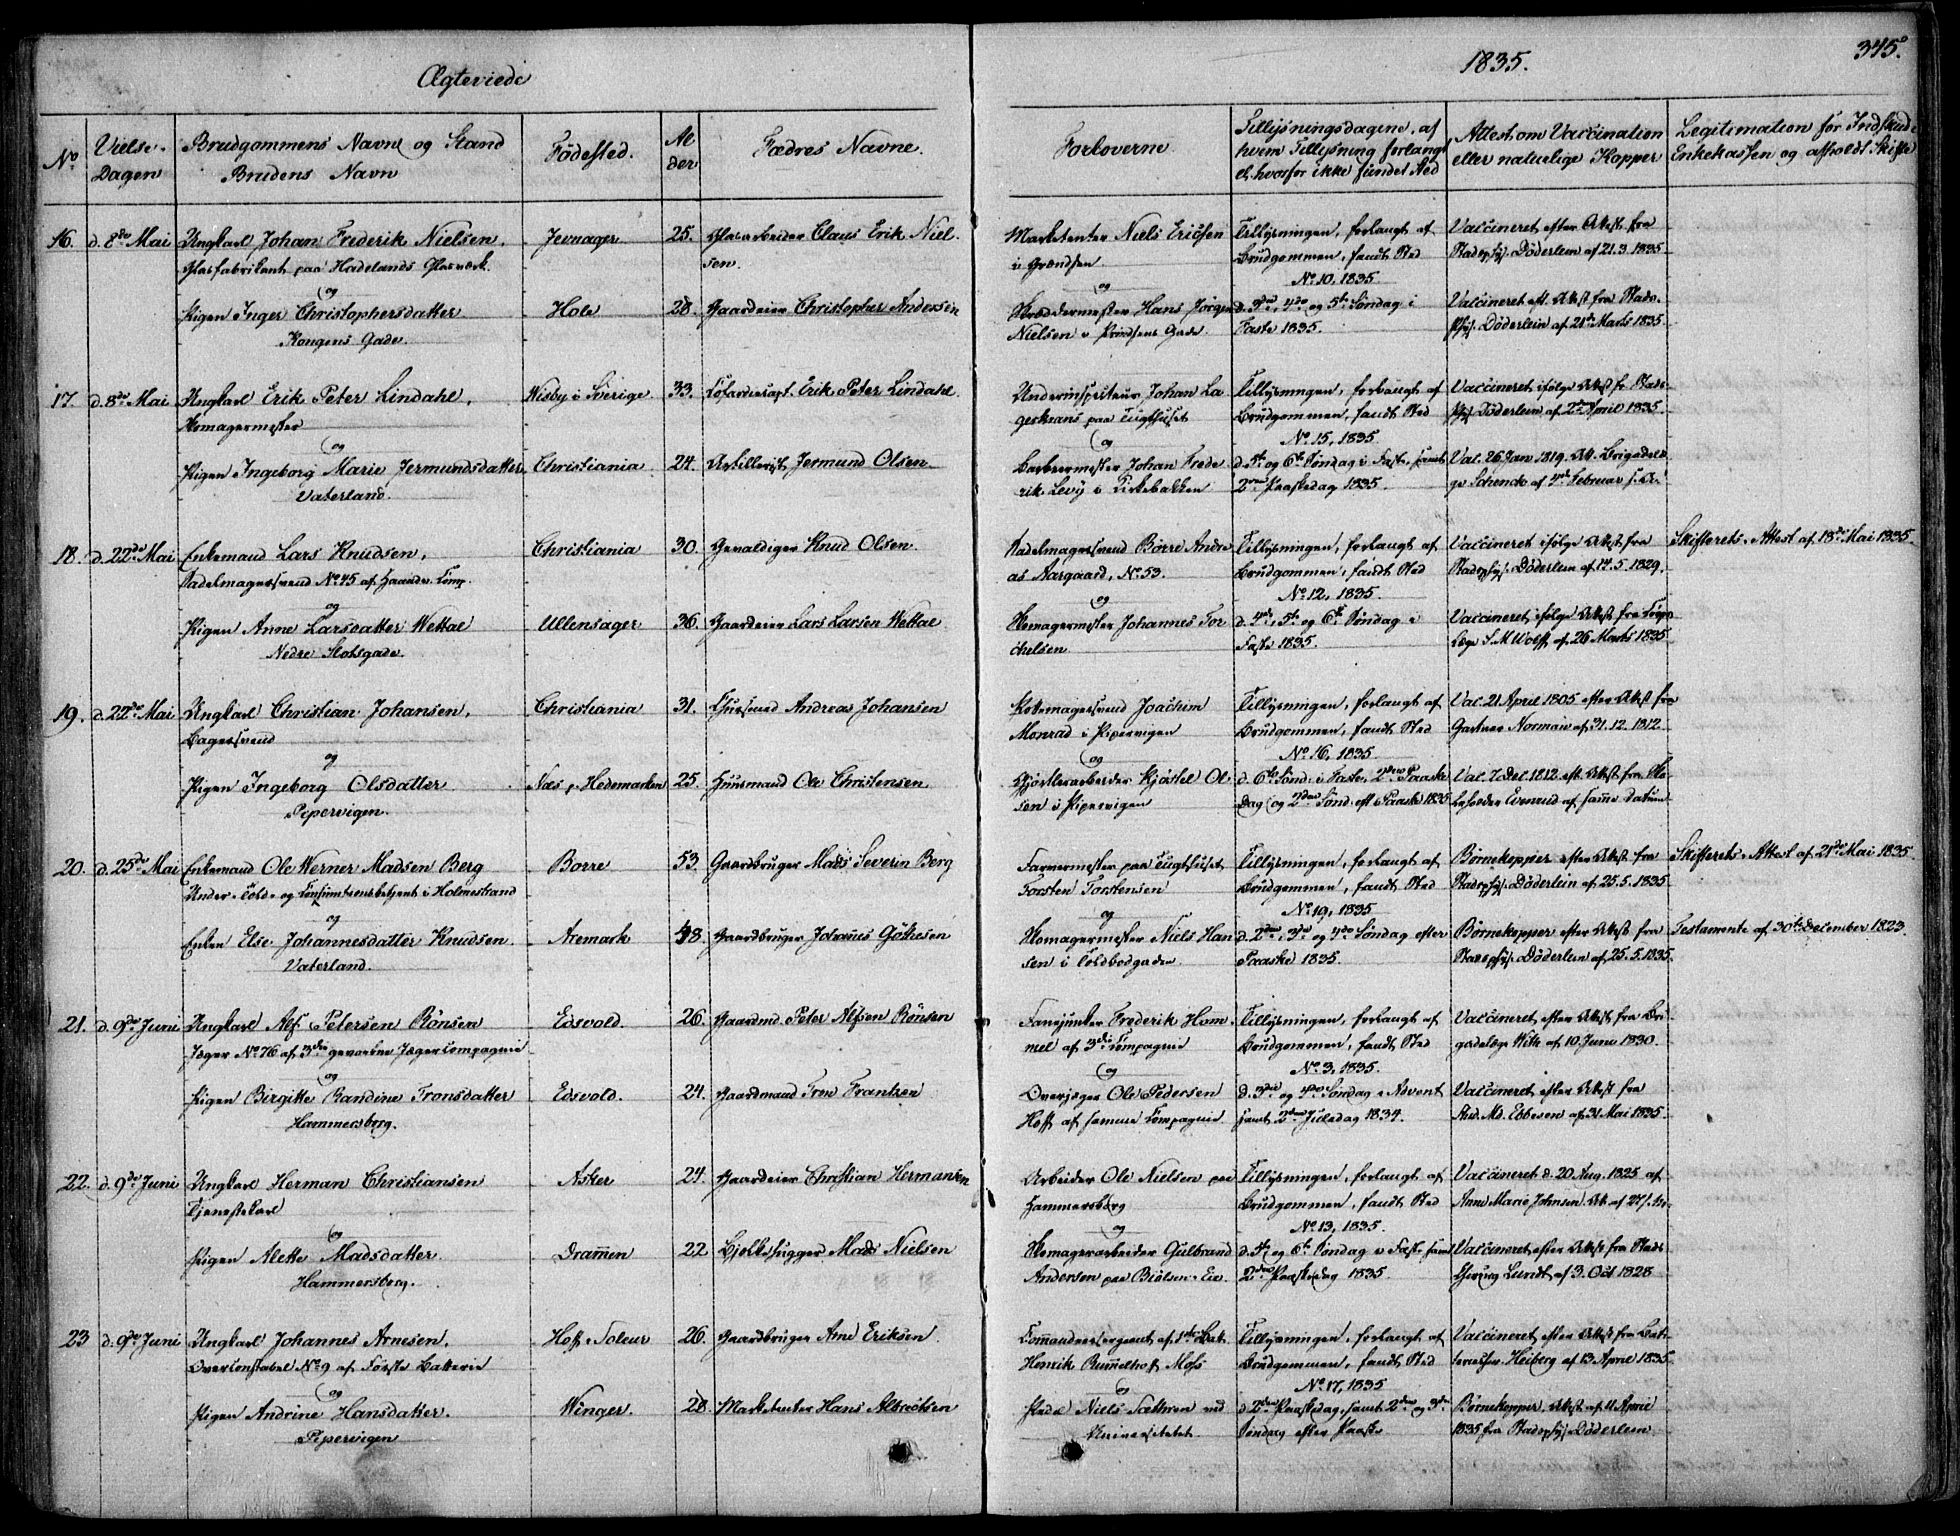 Ægteviede
1835.
345.
No
Vielse-Dagen
Brudgommens Navn og Stand
Brudens Navn
Fødested.
Alder
Fædres Navne.
Forloverne
Tillysningsdagene, af hvem Tillysning forlangt el. hvorfor ikke fundet Sted
Attest om Vaccination eller naturlige Kopper
Legitimation før Indskud i Enkekassen og afholdt Skifte
16. d. 8de Mai Ungkarl Johan Frederik Nielsen, Jevnager 25. Glasarbeider Claus Erik Niel-
Glasfabrikant paa Hadelands Glasværk. sen.
og
Pigen Inger Christophersdatter Hole 28. Gaardeier Christopher Andersen
Kongens Gade.
Marketenter Niels Ericsen Tillysningen, forlangt af Vaccineret efter Attest fra
i Grændsen Brudgommen, fandt Sted Stadsphys. Döderlein af 21.3.1835
og No 10, 1835
Skrædermester Hans Jörgen d. 3die, 4de og 5te Søndag i Vaccineret eft. Attest fra Stads-
Nielsen i Prindsens Gade Faste 1835. phys. Döderlein af 21de Marts 1835
17. d. 8de Mai Ungkarl Erik Peter Lindahl, Wisby i Sverige 33. Cofardiecapt. Erik Peter Lindahl
Skomagermester
og
Pigen Ingeborg Marie Jermundsdatter Christiania 24. Artillerist Jermund Olsen
Vaterland.
Underinspecteur Johan La- Tillysningen, forlangt af Vaccineret ifølge Attest fr. Stads-
gerkrans paa Tugthuset Brudgommen, fandt Sted phys. Döderlein af 2den April 1835.
og No 15, 1835
Barbeermester Johan Frede- d. 5te og 6te Søndag i Faste, samt Val. 26 Jan 1819. Att. Brigadelæ-
rik Levÿ i Kirkebakken 2den Paaskedag 1835. ge Schenck af 4de Februar s. A.
18. d. 22de Mai Enkemand Lars Knudsen, Christiania 30. Gevaldiger Knud Olsen
Sadelmagersvend No 45 af Haandv. Comp.
og
Pigen Anne Larsdatter Wettal Ullensager 36. Gaardeier Lars Larsen Wettal
Nedre Slotsgade.
Sadelmagersvend Børre Andre- Tillysningen, forlangt af Vaccineret ifølge Attest fra Skifterets-Attest af 18de Mai 1835.
as Aargaard, No 53. Brudgommen, fandt Sted Stadsphys. Döderlein af 14.5.1829.
og No 12, 1835
Skomagermester Johannes Tor- d. 4de, 5te og 6te Søndag i Vaccineret ifølge Attest fra Corps-
chelsen Faste 1835. Læge S. M. Wolff af 26 Marts 1835.
19. d. 22de Mai Ungkarl Christian Johansen, Christiania 31. Chursmed Andreas Johansen
Bagersvend
og
Pigen Ingeborg Olsdatter Næs p. Hedemarken 25. Huusmand Ole Christensen
Pipervigen.
Joachim Tillysningen, forlangt af Val. 21 April 1805 efter Attest fra
Monrad i Pipervigen Brudgommen, fandt Sted Gartner Normann af 31.12.1812.
og No 16, 1835
Kjøstel Ol- d. 6te Sönd. i Faste, 2den Paaske- Val. 7 Dec. 1812 eft. Attest fra Sko-
sen i Pipervigen dag og 2den Sönd. eft. Paaske 1835 leholder Evenrud af samme Datum
20. d. 25de Mai Enkemand Ole Werner Madsen Berg Borre 53. Gaardbruger Mads Severin Berg
Under-Told- og Consumtionsbetjent i Holmestrand
og
Enken Else Johannesdatter Knudsen Aremark 48. Gaardbruger Johannes Götesen
Vaterland.
Farvermester paa Tugthuset Tillysningen, forlangt af Børnekopper efter Attest fra Skifterets-Attest af 21de Mai 1835.
Torsten Torstensen Brudgommen, fandt Sted Stadsphys. Döderlein af 25.5.1835
og No 19, 1835
Skomagermester Niels Han- d. 2den, 3die og 4de Søndag efter Børnekopper efter Attest fra Testamente af 30te December 1823.
sen i Toldbodgaden Paaske 1835. Stadsphys. Döderlein af 25.5.1835.
21. d. 9de Juni Ungkarl Alf Petersen Rönsen Edsvold. 26. Gaardmd. Peter Alfsen Rönsen
Jæger No 76 af 3die gevorbne Jægercompagnie
og
Pigen Birgitte Randine Tronsdatter Edsvold. 24. Gaardmand Tron Frantzen
Hammersborg.
Fanejunker Frederik Hom- Tillysningen, forlangt af Vaccineret efter Attest fra Bri-
mel af 3die Compagnie Brudgommen, fandt Sted gadelæge Witt af 10 Juni 1830.
og No 3, 1835.
Overjæger Ole Pedersen d. 3die og 4de Søndag i Advent Vaccineret efter Attest fra
Hoff af samme Compagnie samt 2den Juledag 1834. Stud. Md. Ebbesen af 31 Mai 1835.
22. d. 9de Juni Ungkarl Herman Christiansen Asker 24. Gaardeier Christian Hermansen
Tjenestekarl
og
Pigen Alette Madsdatter Drammen 22. Bjelkehugger Mads Nielsen
Hammersborg.
Arbeider Ole Nielsen paa Tillysningen, forlangt af Vaccineret d. 20 Aug. 1825 af
Hammersborg Brudgommen, fandt Sted Anne Marie Johnsen. Att. af
og No 13, 1835.
Skomagerarbeider Gulbrand d. 5te og 6te Søndag i Faste samt Vaccineret, efter Attest fra Stads-
Andersen paa 2den Paaskedag 1835. Chirurg Lundt af 3. Oct 1828
23 d. 9de Juni Ungkarl Johannes Arnesen, Hoff, Soleur 26. Gaardbruger Arne Eriksen
Overconstabel No 9 af Første Batterie
og
Pigen Andrine Hansdatter. Winger. 28. Marketenter Hans Albretsen
Pipervigen
Commandeersergeant af 1ste Bat. Tillysningen, forlangt af Vaccineret efter Attest fra Bat-
Henrik Rummelhof Moss Brudgommen, fandt Sted Heiberg af 13 April 1835.
og No 17, 1835
Niels Sættren ved d. 2den Paaskedag, samt 2den og 3die Børnekopper, Attest af 11 April
Universitetet Søndag efter Paaske 1835 fra Stadsphys. Döderlein